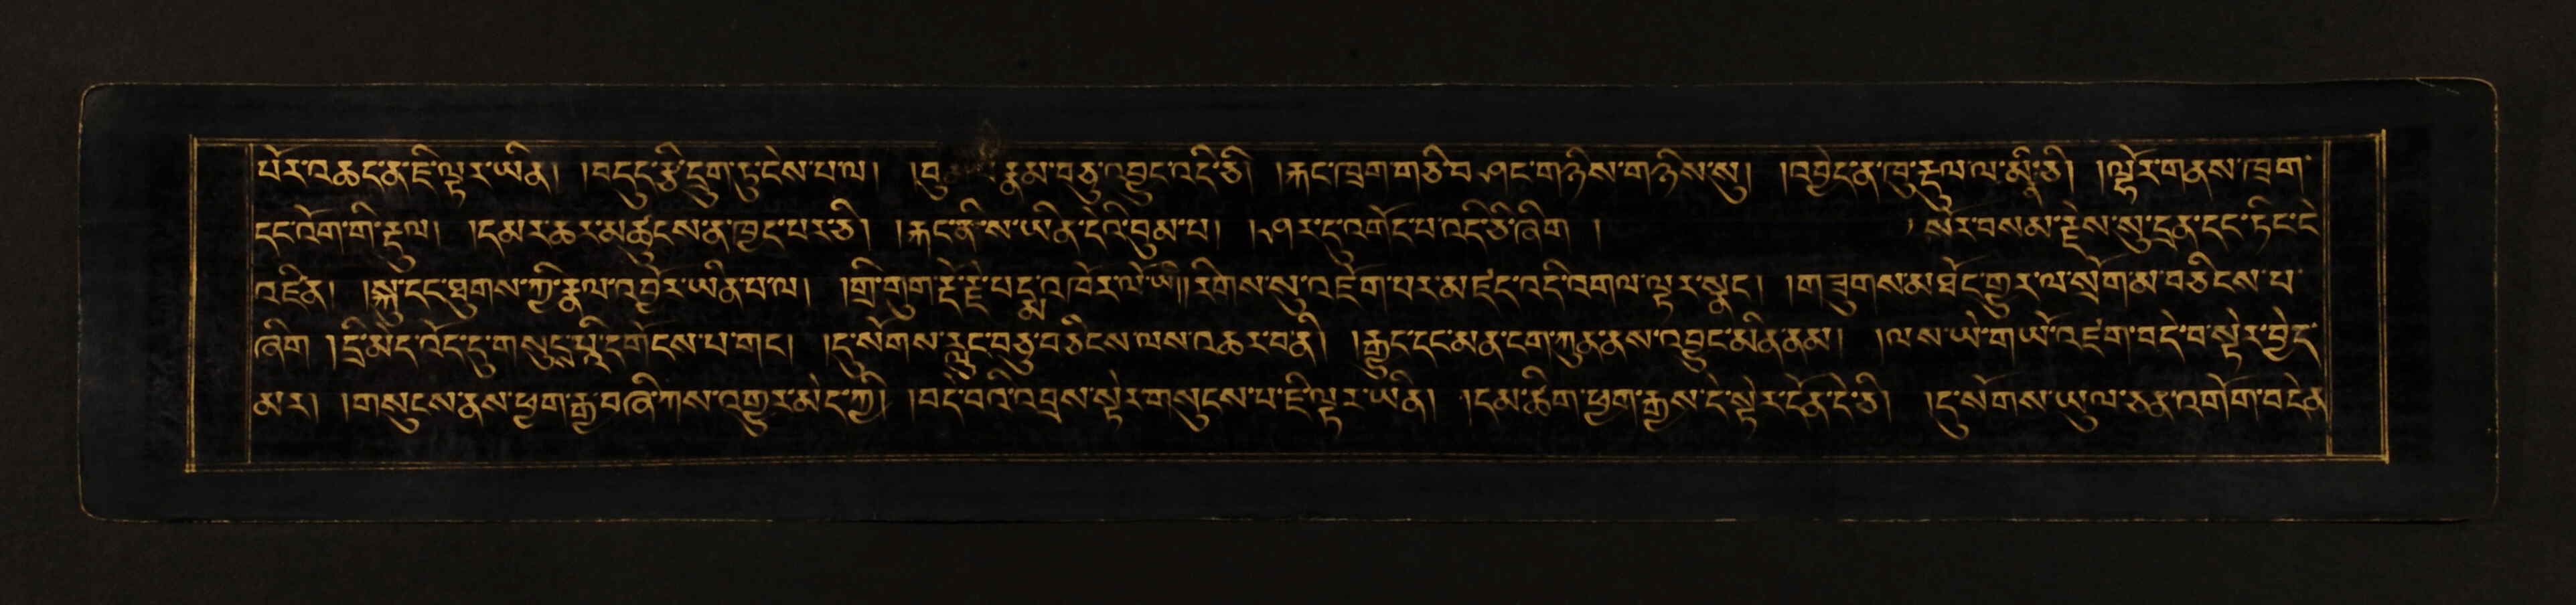 པོར་འཆང་ན་ཇི་ལྟར་ཡིན། །བདུད་རྩི་དྲུག་ཏུ་ངེས་པ་ལ། །བུ རྣམ་བཅུ་འབྱུང་འདི་ཅི། །རྐང་ཁྲག་གཅི་བ་ཤང་གཉིས་གཉིས་སུ། །འབྱེད་ན་ཁུ་རྡུལ་ལ་མི་ནི་ཅི། །ལྟེར་གནས་ཁྲག་
དང་འོག་གི་རྡུལ། །དམར་ཆར་མཚུངས་ན་ཁྱད་པར་ཅི། །རྐང་ནི་ས་ཡིན་དེའི་བུམ་པ། །ཤར་དུ་འགོད་པ་འདི་ཅི་ཞིག །སོར་བསམ་རྗེས་སུ་དྲན་དང་ཏིང་ངེ་
འཛིན། །སྐུ་དང་ཐུགས་ཀྱི་རྣལ་འབྱོར་ཡིན་པ་ལ། །གྲི་གུག་རྡོ་རྗེ་པདྨ་འཁོར་ལོ་ཡི།། རིགས་སུ་འཇོག་པར་མཛད་འདི་འགལ་ལྟར་སྣང། །གཟུགས་མཐོང་གྱུར་ལ་སྲོག་མ་བཅིངས་པ་
ཞིག །དྲི་མེད་འོད་དུ་གསུངས་པའི་དགོངས་པ་གང། །དུ་སོགས་རླུང་བཅུ་བཅིངས་ལས་འཆར་བ་ནི། །རྒྱུད་དང་མན་ངག་ཀུན་ནས་འབྱུང་མིན་ནམ། །ལས་ཡེ་གཡོ་འཛག་བདེ་བ་སྟེར་བྱེད་
མར། །གསུངས་ནས་ཕྱག་རྒྱ་བཞི་ཀས་འགྱུར་མེད་ཀྱི། །བདེ་བའི་འབྲས་སྟེར་གསུངས་པ་ཇི་ལྟར་ཡིན། །དམ་ཚིག་ཕྱག་རྒྱས་དེ་སྟེར་དོན་དེ་ཅི། །དུ་སོགས་ཡུལ་ཅན་འགོག་བདེན